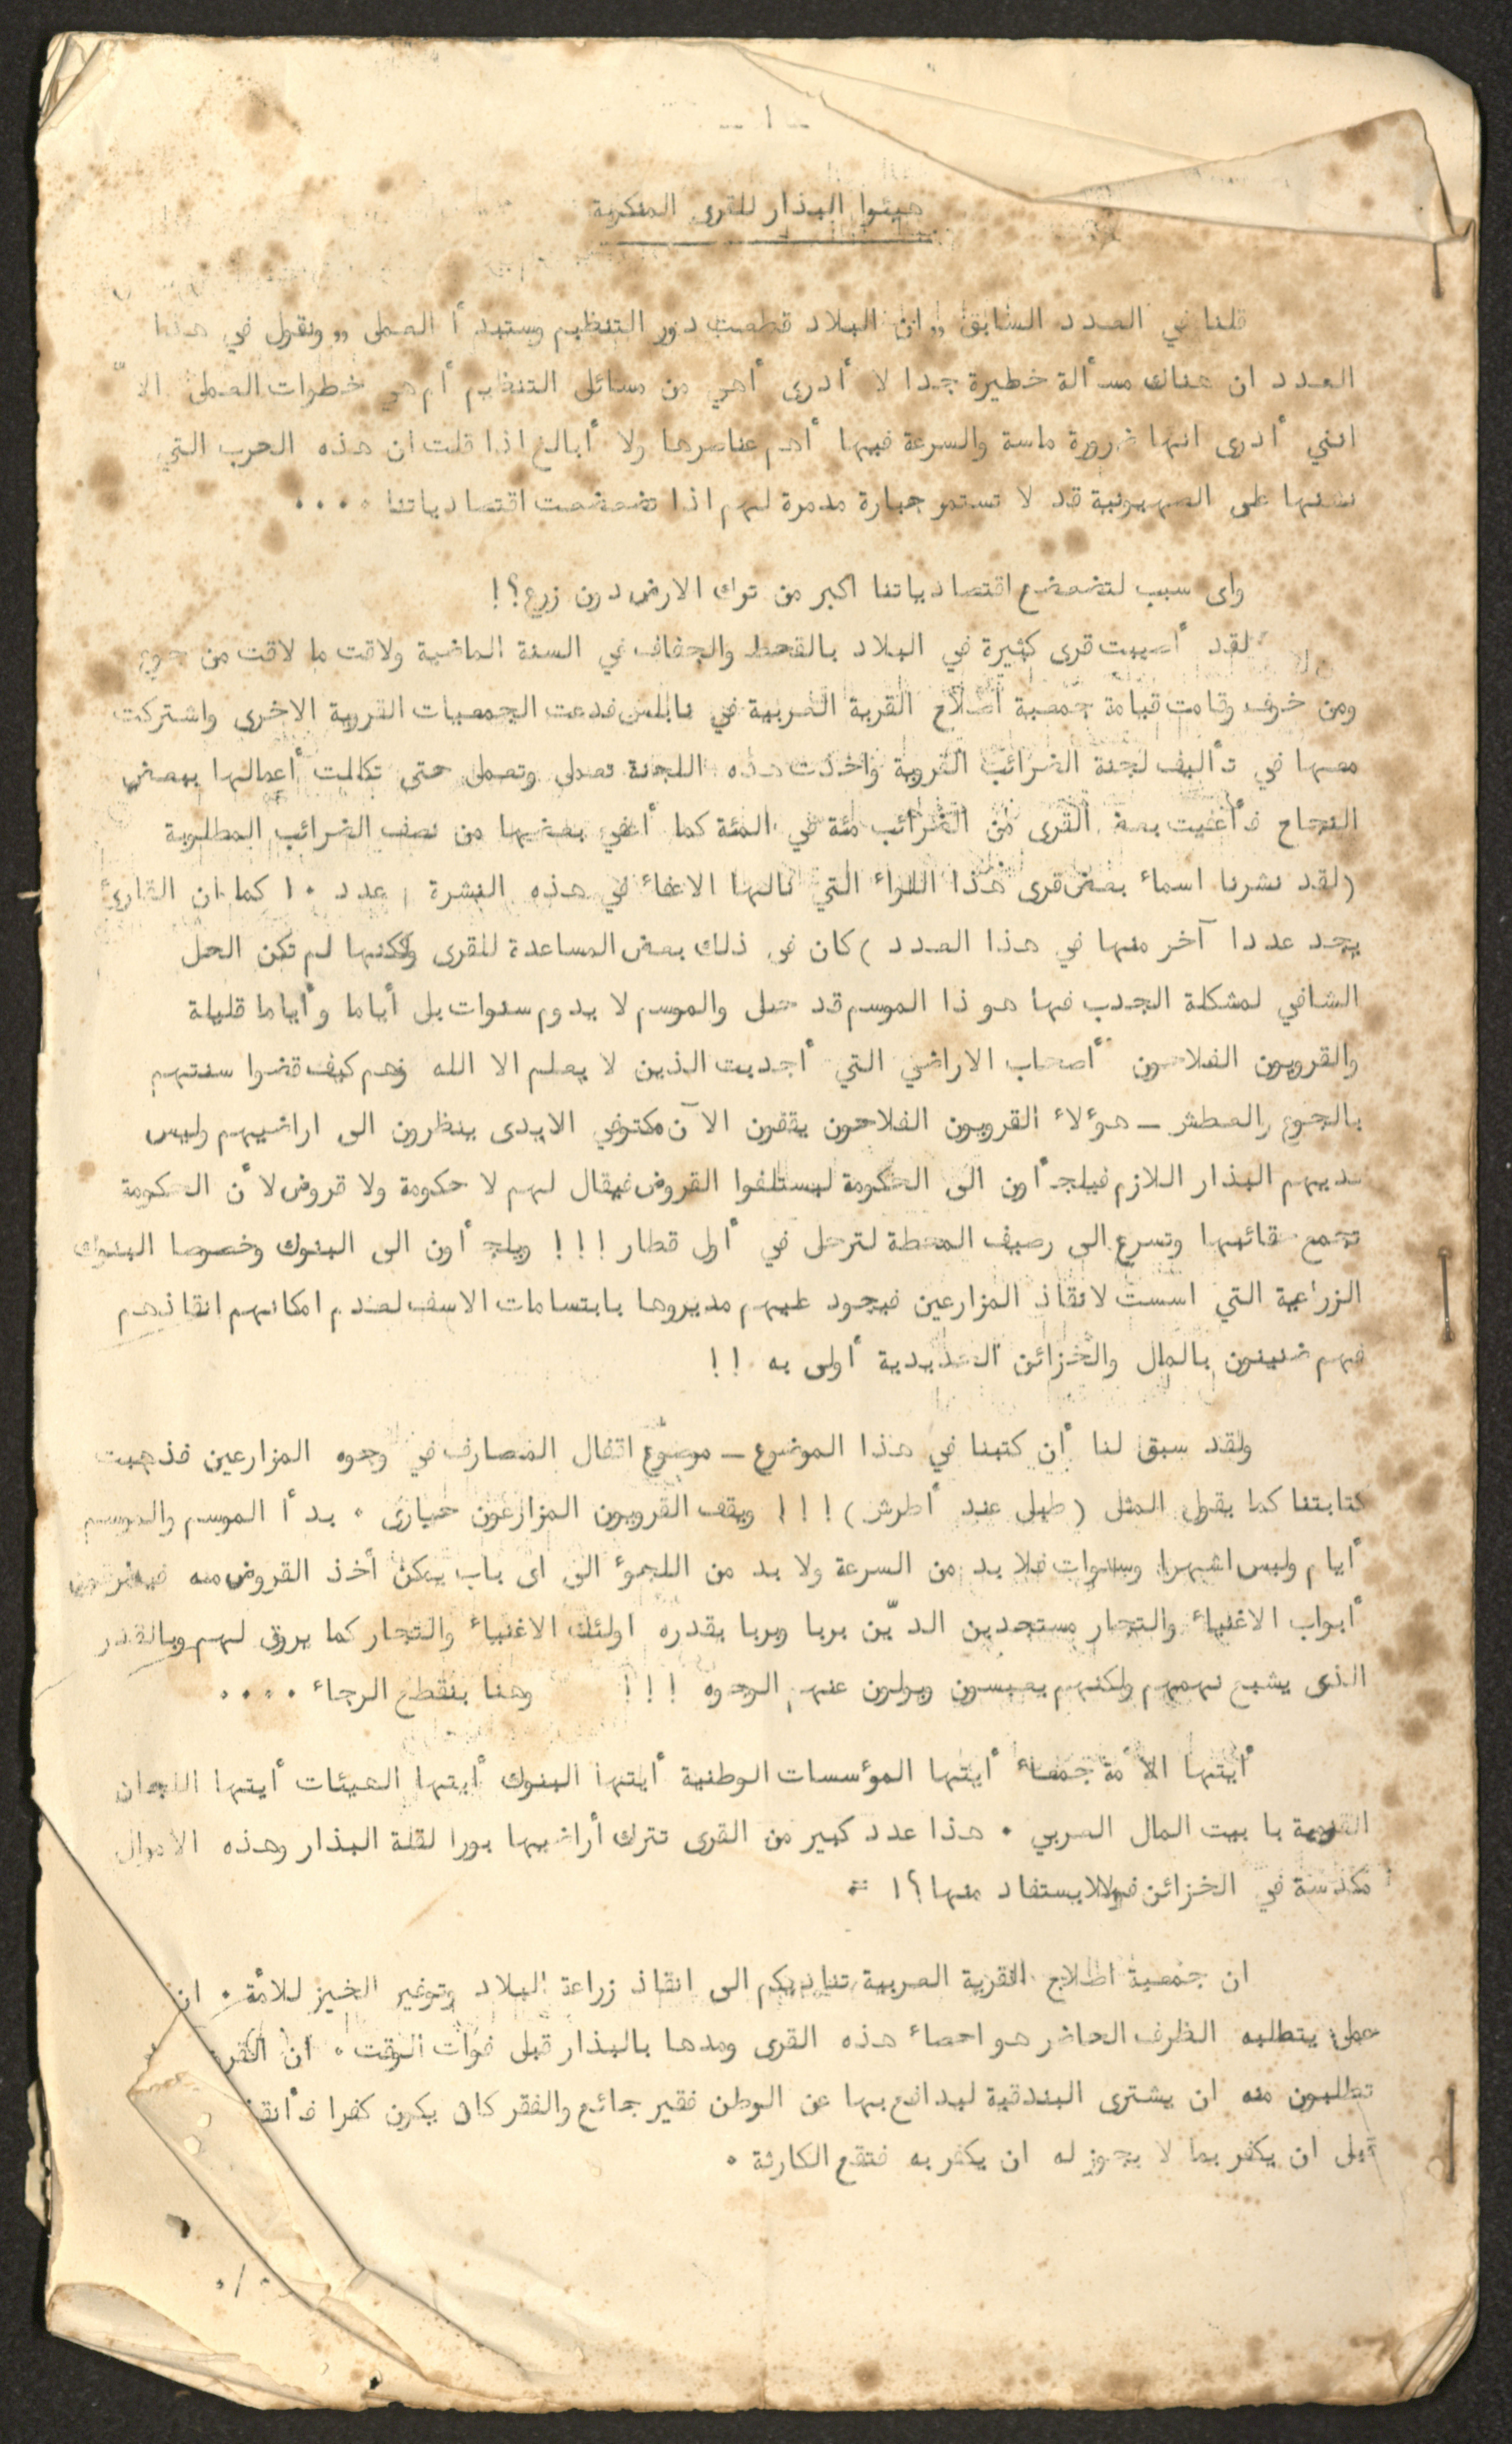 - ١ -
هيئوا البذار للقرى المنكوبة
قلنا في العدد السابق ,, ان البلاد قطعت دور التنظيم وستبدأ العمل ,, ونقول في هذا
العدد ان هناك مسألة خطيرة جدا لا أدرى أهي من مسائل التنظيم أم هي خطوات العمل الاّ
انني أدرى انها ضرورة ماسة والسرعة فيها أهم عناصرها ولا أبالغ اذا قلت ان هذه الحرب التي
نشنها على الصهيونية قد لا تستمر جبارة مدمرة لهم اذا تضعضعت اقتصادياتنا ٠٠٠٠
واى سبب لتضعضع اقتصادياتنا اكبر من ترك الارض دون زرع؟!
لقد أصيبت قرى كثيرة في البلاد بالقحط والجفاف في السنة الماضية ولاقت ما لاقت من جوع
ومن خوف وقامت قيامة جمعية اصلاح القرية العربية في نابلس فدعت الجمعيات القروية الاخرى واشتركت
معها في تأليف لجنة الضرائب القروية واخذت هذه اللجنة تعمل وتعمل حتى تكللت أعمالها ببعض
النجاح فأعفيت بعض القرى من الضرائب مئة في المئة كما أعفي بعضها من نصف الضرائب المطلوبة
(لقد نشرنا اسماء بعض قرى هذا اللواء التي نالها الاعفاء في هذه النشرة عدد ١٠ كما ان القارئ
يجد عددا آخر منها في هذا العدد) كان في ذلك بعض المساعدة للقرى ولكنها لم تكن الحل
الشافي لمشكلة الجدب فها هو ذا الموسم قد حل والموسم لا يدوم سنوات بل أياما وأياما قليلة
والقرويون الفلاحون أصحاب الاراضي التي أجدبت الذين لا يعلم الا الله وهم كيف قضوا سنتهم
بالجوع والعطش - هؤلاء القرويون الفلاحون يقفون الآن مكتوفي الايدى ينظرون الى اراضيهم وليس
لديهم البذار اللازم فيلجأون الى الحكومة ليستلفوا القروض فيقال لهم لا حكومة ولا قروض لأن الحكومة
تجمع حقائبها وتسرع الى رصيف المحطة لترحل في أول قطار !!! ويلجأون الى البنوك وخصوصا البنوك
الزراعية التي اسست لانقاذ المزارعين فيجود عليهم مديروها بابتسامات الاسف لعدم امكانهم انقاذهم
فهم ضنينون بالمال والخزائن الحديدية أولى به !!
ولقد سبق لنا أن كتبنا في هذا الموضوع - موضوع اقفال المصارف في وجوه المزارعين فذهبت
كتابتنا كما يقول المثل (طبل عند أطرش) !!! ويقف القرويون المزارعون حيارى ٠ بدأ الموسم والموسم
أيام وليس اشهرا وسنوات فلا بد من السرعة ولا بد من اللجوء الى اى باب يمكن أخذ القروض منه فيقرعون
أبواب الاغنياء والتجار مستجدين الدّين بربا وبربا يقدره اولئك الاغنياء والتجار كما يروق لهم وبالقدر
الذى يشبع نهمهم ولكنهم يعبسون ويولون عنهم الوجوه !!! وهنا ينقطع الرجاء ٠٠٠٠
أيتها الأمة جمعاء أيتها المؤسسات الوطنية أيتها البنوك أيتها الهيئات أيتها اللجان
القومية يا بيت المال العربي ٠ هذا عدد كبير من القرى تترك أراضيها بورا لقلة البذار وهذه الاموال
مكدسة في الخزائن لا يستفاد منها؟!
ان جمعية اصلاح القرية العربية تناديكم الى انقاذ زراعة البلاد وتوفير الخبز للأمة ٠ ان
عمل يتطلبه الظرف الحاضر هو احصاء هذه القرى ومدها بالبذار قبل فوات الوقت ٠ ان
تطلبون منه ان يشترى البندقية ليدافع بها عن الوطن فقير جائع والفقر كان يكون كفرا
قبل ان يكفر بما لا يجوز له ان يكفر به فتقع الكارثة ٠
٠/٠